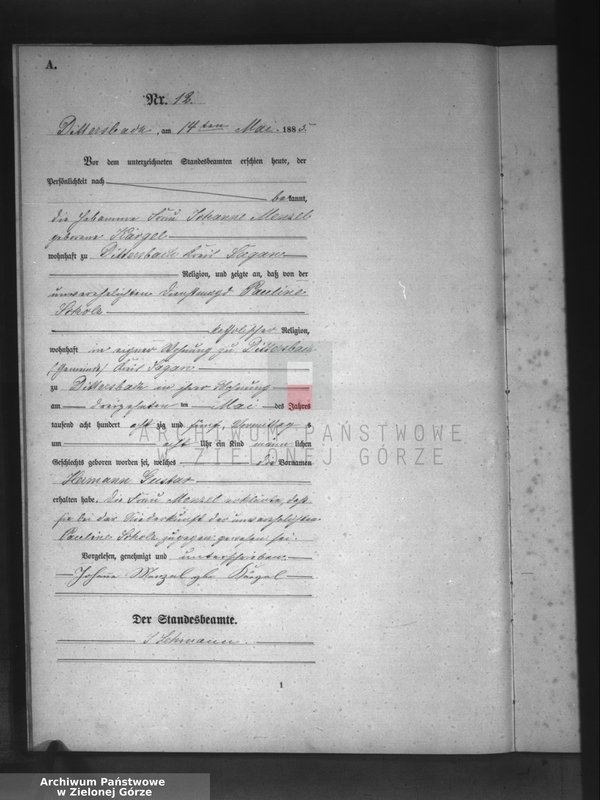 A.
Nr. 12.
Dittersbach, am 14ten Mai 1885
Vor dem unterzeichneten Standesbeamten erschien heute, der
Persönlichkeit nach
be kannt,
die Hebamme Frau Johanne Menzel
geborene Kärgel
wohnhaft zu Dittersbach Kreis Sagan
Religion, und zeigte an, daß von der
unverehelichten Dienstmagd Pauline
Scholz
katholischer Religion,
wohnhaft in eigner Wohnung zu Dittersbach
(Gemeinde) Kreis Sagan
zu Dittersbach in ihrer Wohnung
am dreizehnten ten Mai des Jahres
tausend acht hundert acht zig und fünf, Vormittag s
um acht Uhr ein Kind männ lichen
Geschlechts geboren worden sei, welches die Vornamen
Hermann Gustav
erhalten habe. Die Frau Menzel erklärte, daß
sie bei der Niederkunft der unverehelichten
Pauline Scholz zugegen gewesen sei.
Vorgelesen, genehmigt und unterschrieben.
Menzel gb. Kärgel
Der Standesbeamte.
1
ARCHIWUM PAŃSTWOWE
W ZIELONEJ GÓRZE
Archiwum Państwowe
w Zielonej Górze